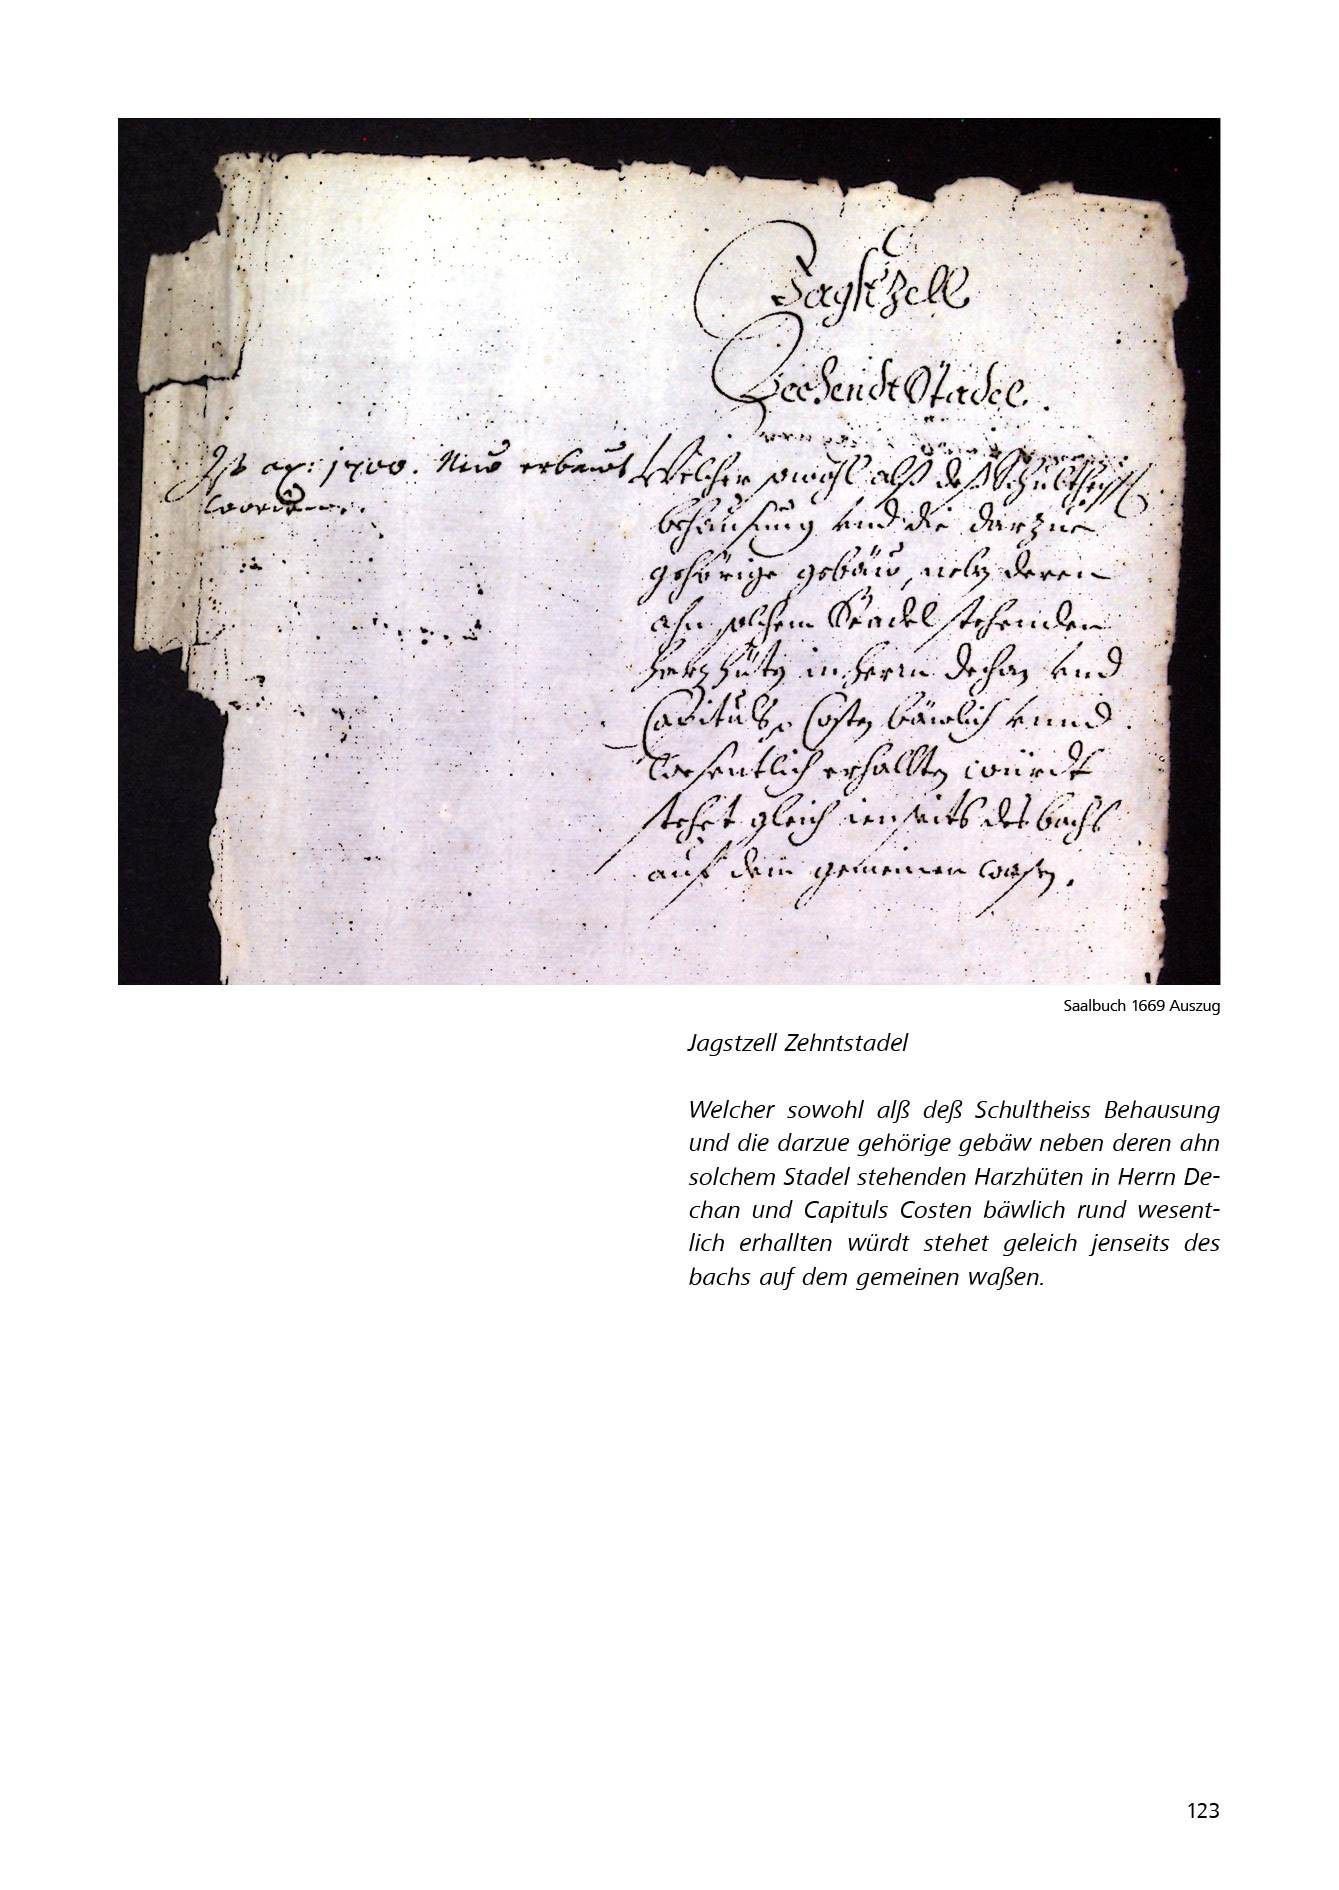 Jagstzell
Zeehendt Stadel.
Ist aō: 1700. Neuw erbauwt
worden.
Welcher sowohl alß deß Schultheiß
behausung vnd die darzue
gehörige gebäw, neben deren
ahn solchem Stadel stehenden
harzhüten in herrn dechan vnd
Capituls Costen bäwlich vnnd
wesentlich erhallten würdt
stehet gleich ienseits des bachs
auf dem gemeinen wasen.
Saalbuch 1669 Auszug
Jagstzell Zehntstadel
Welcher sowohl alß deß Schultheiss Behausung
und die darzue gehörige gebäw neben deren ahn
solchem Stadel stehenden Harzhüten in Herrn De-
chan und Capituls Costen bäwlich rund wesent-
lich erhallten würdt stehet geleich jenseits des
bachs auf dem gemeinen waßen.
123